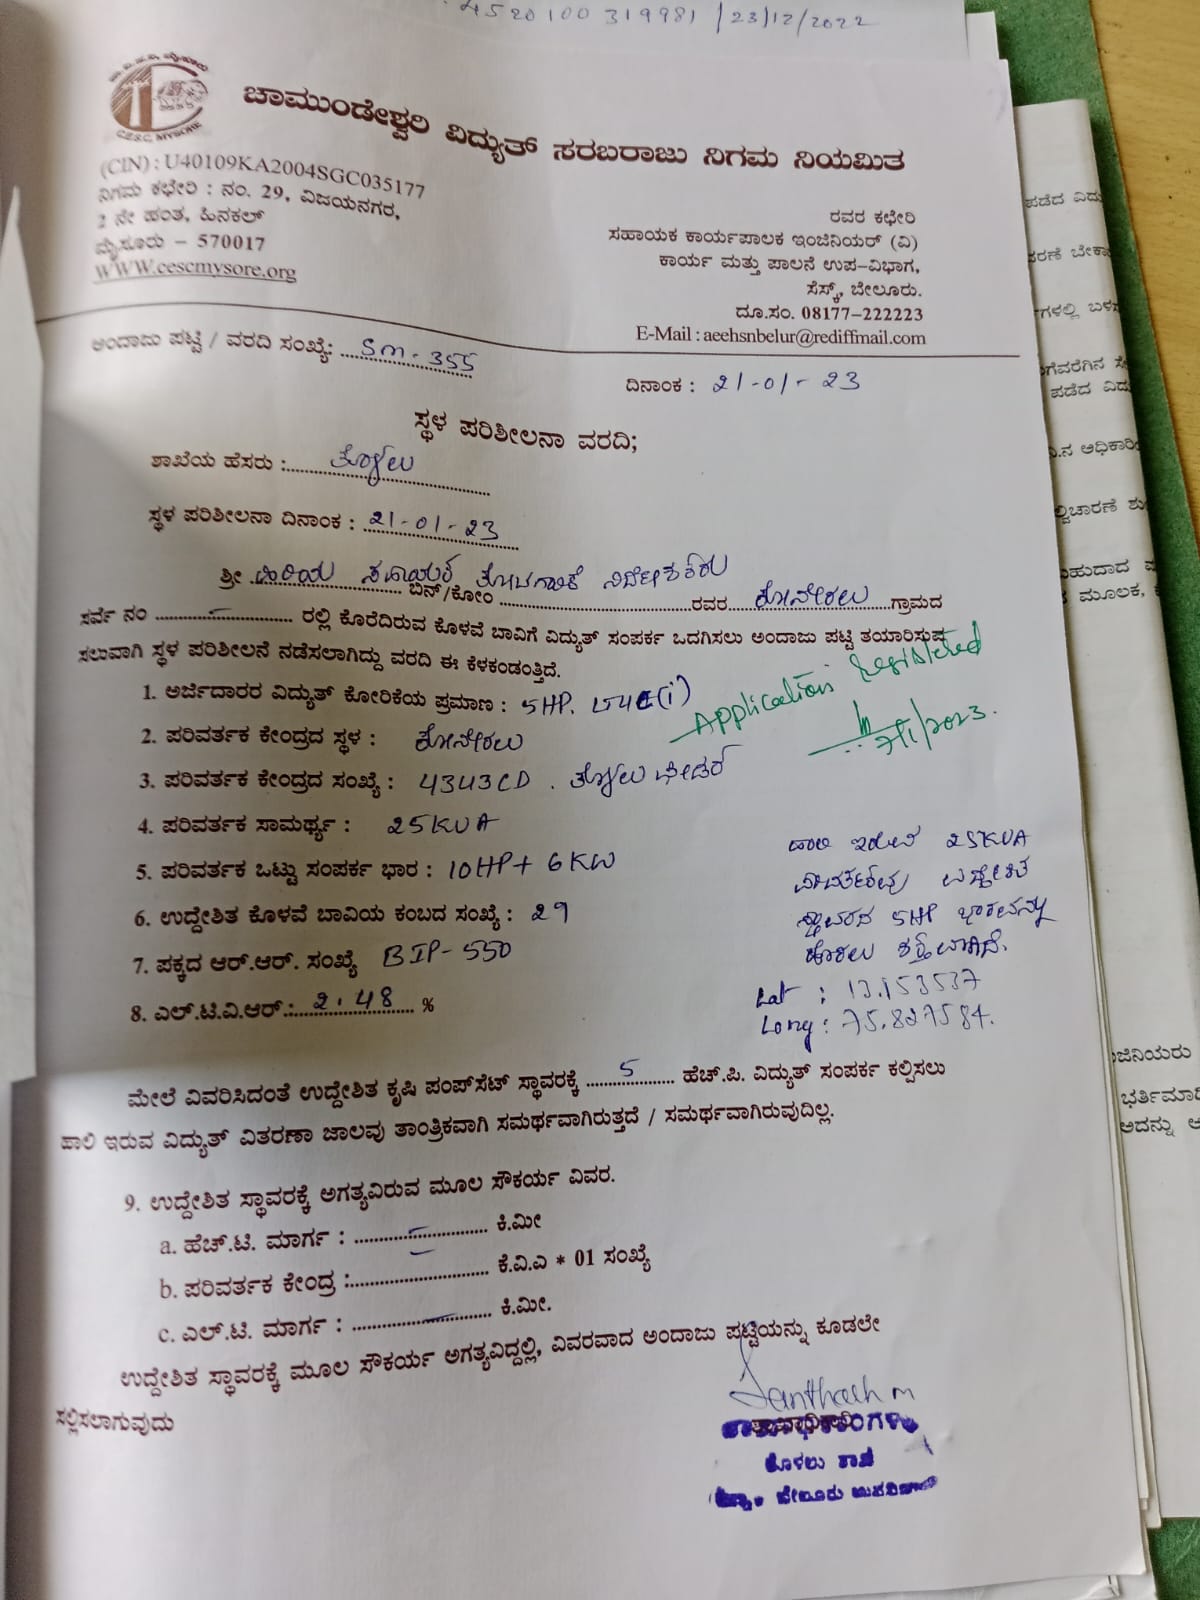 4520100319981 /23/12/2022
C.E.S.C. MYSORE
ಚಾಮುಂಡೇಶ್ವರಿ ವಿದ್ಯುತ್ ಸರಬರಾಜು ನಿಗಮ ನಿಯಮಿತ
(CIN) : U40109KA2004SGC035177
ನಿಗಮ ಕಛೇರಿ : ನಂ. 29, ವಿಜಯನಗರ,
2 ನೇ ಹಂತ, ಹಿನಕಲ್
ಮೈಸೂರು – 570017
WWW.cescmysore.org
ರವರ ಕಛೇರಿ
ಸಹಾಯಕ ಕಾರ್ಯಪಾಲಕ ಇಂಜಿನಿಯರ್ (ವಿ)
ಕಾರ್ಯ ಮತ್ತು ಪಾಲನೆ ಉಪ-ವಿಭಾಗ,
ಸೆಸ್ಕ್, ಬೇಲೂರು.
ದೂ.ಸಂ. 08177-222223
E-Mail : aeehsnbelur@rediffmail.com
ಅಂದಾಜು ಪಟ್ಟಿ / ವರದಿ ಸಂಖ್ಯೆ: Sm-355
ದಿನಾಂಕ : 21-01-23
ಸ್ಥಳ ಪರಿಶೀಲನಾ ವರದಿ;
ಶಾಖೆಯ ಹೆಸರು :
ಸ್ಥಳ ಪರಿಶೀಲನಾ ದಿನಾಂಕ : 21-01-23
ಶ್ರೀ ಹಿರಿಯ ಸಹಾಯಕ ತೋಟಗಾರಿಕೆ ನಿರ್ದೇಶಕರು ಬಿನ್/ಕೋಂ ರವರ ಕೋನೇರಲು ಗ್ರಾಮದ
ಸರ್ವೆ ನಂ – ರಲ್ಲಿ ಕೊರೆದಿರುವ ಕೊಳವೆ ಬಾವಿಗೆ ವಿದ್ಯುತ್ ಸಂಪರ್ಕ ಒದಗಿಸಲು ಅಂದಾಜು ಪಟ್ಟಿ ತಯಾರಿಸುವ
ಸಲುವಾಗಿ ಸ್ಥಳ ಪರಿಶೀಲನೆ ನಡೆಸಲಾಗಿದ್ದು ವರದಿ ಈ ಕೆಳಕಂಡಂತ್ತಿದೆ.
Application Registered
1. ಅರ್ಜಿದಾರರ ವಿದ್ಯುತ್ ಕೋರಿಕೆಯ ಪ್ರಮಾಣ : 5HP.
2. ಪರಿವರ್ತಕ ಕೇಂದ್ರದ ಸ್ಥಳ : ಕೋನೇರಲು
3. ಪರಿವರ್ತಕ ಕೇಂದ್ರದ ಸಂಖ್ಯೆ : 4343CD .
4. ಪರಿವರ್ತಕ ಸಾಮರ್ಥ್ಯ : 25KVA
5. ಪರಿವರ್ತಕ ಒಟ್ಟು ಸಂಪರ್ಕ ಭಾರ : 10HP+ 6KW
6. ಉದ್ದೇಶಿತ ಕೊಳವೆ ಬಾವಿಯ ಕಂಬದ ಸಂಖ್ಯೆ : 29
7. ಪಕ್ಕದ ಆರ್.ಆರ್. ಸಂಖ್ಯೆ BIP-550
8. ಎಲ್.ಟಿ.ವಿ.ಆರ್.: 2.48 %
ಹಾಲಿ ಇರುವ 25KVA
ಉದ್ದೇಶಿತ
ಸ್ಥಾವರದ 5HP ಭಾರವನ್ನು
Lat : 13.153537
Long : 75.827584.
ಮೇಲೆ ವಿವರಿಸಿದಂತೆ ಉದ್ದೇಶಿತ ಕೃಷಿ ಪಂಪ್‌ಸೆಟ್ ಸ್ಥಾವರಕ್ಕೆ 5 ಹೆಚ್.ಪಿ. ವಿದ್ಯುತ್ ಸಂಪರ್ಕ ಕಲ್ಪಿಸಲು
ಹಾಲಿ ಇರುವ ವಿದ್ಯುತ್ ವಿತರಣಾ ಜಾಲವು ತಾಂತ್ರಿಕವಾಗಿ ಸಮರ್ಥವಾಗಿರುತ್ತದೆ / ಸಮರ್ಥವಾಗಿರುವುದಿಲ್ಲ.
9. ಉದ್ದೇಶಿತ ಸ್ಥಾವರಕ್ಕೆ ಅಗತ್ಯವಿರುವ ಮೂಲ ಸೌಕರ್ಯ ವಿವರ.
a. ಹೆಚ್.ಟಿ. ಮಾರ್ಗ : – ಕಿ.ಮೀ
b. ಪರಿವರ್ತಕ ಕೇಂದ್ರ : ಕೆ.ವಿ.ಎ * 01 ಸಂಖ್ಯೆ
c. ಎಲ್.ಟಿ. ಮಾರ್ಗ : – ಕಿ.ಮೀ.
ಉದ್ದೇಶಿತ ಸ್ಥಾವರಕ್ಕೆ ಮೂಲ ಸೌಕರ್ಯ ಅಗತ್ಯವಿದ್ದಲ್ಲಿ, ವಿವರವಾದ ಅಂದಾಜು ಪಟ್ಟಿಯನ್ನು ಕೂಡಲೇ
ಸಲ್ಲಿಸಲಾಗುವುದು
Santhosh m